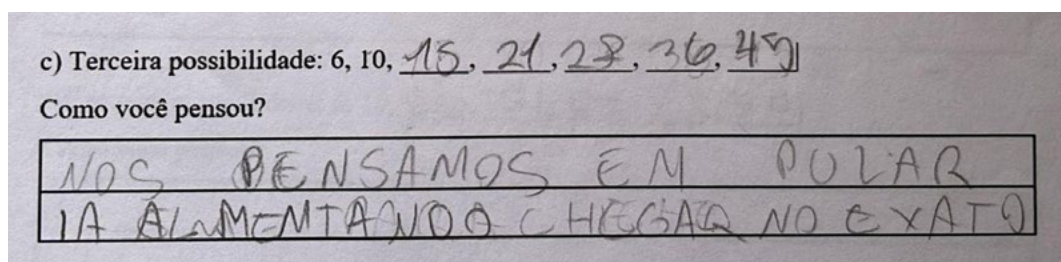 c) Terceira possibilidade: 6, 10, 15, 21, 28, 36, 45
Como você pensou?
NOS PENSAMOS EM PULAR
IA ALMENTANDO A CHEGAR NO EXATO